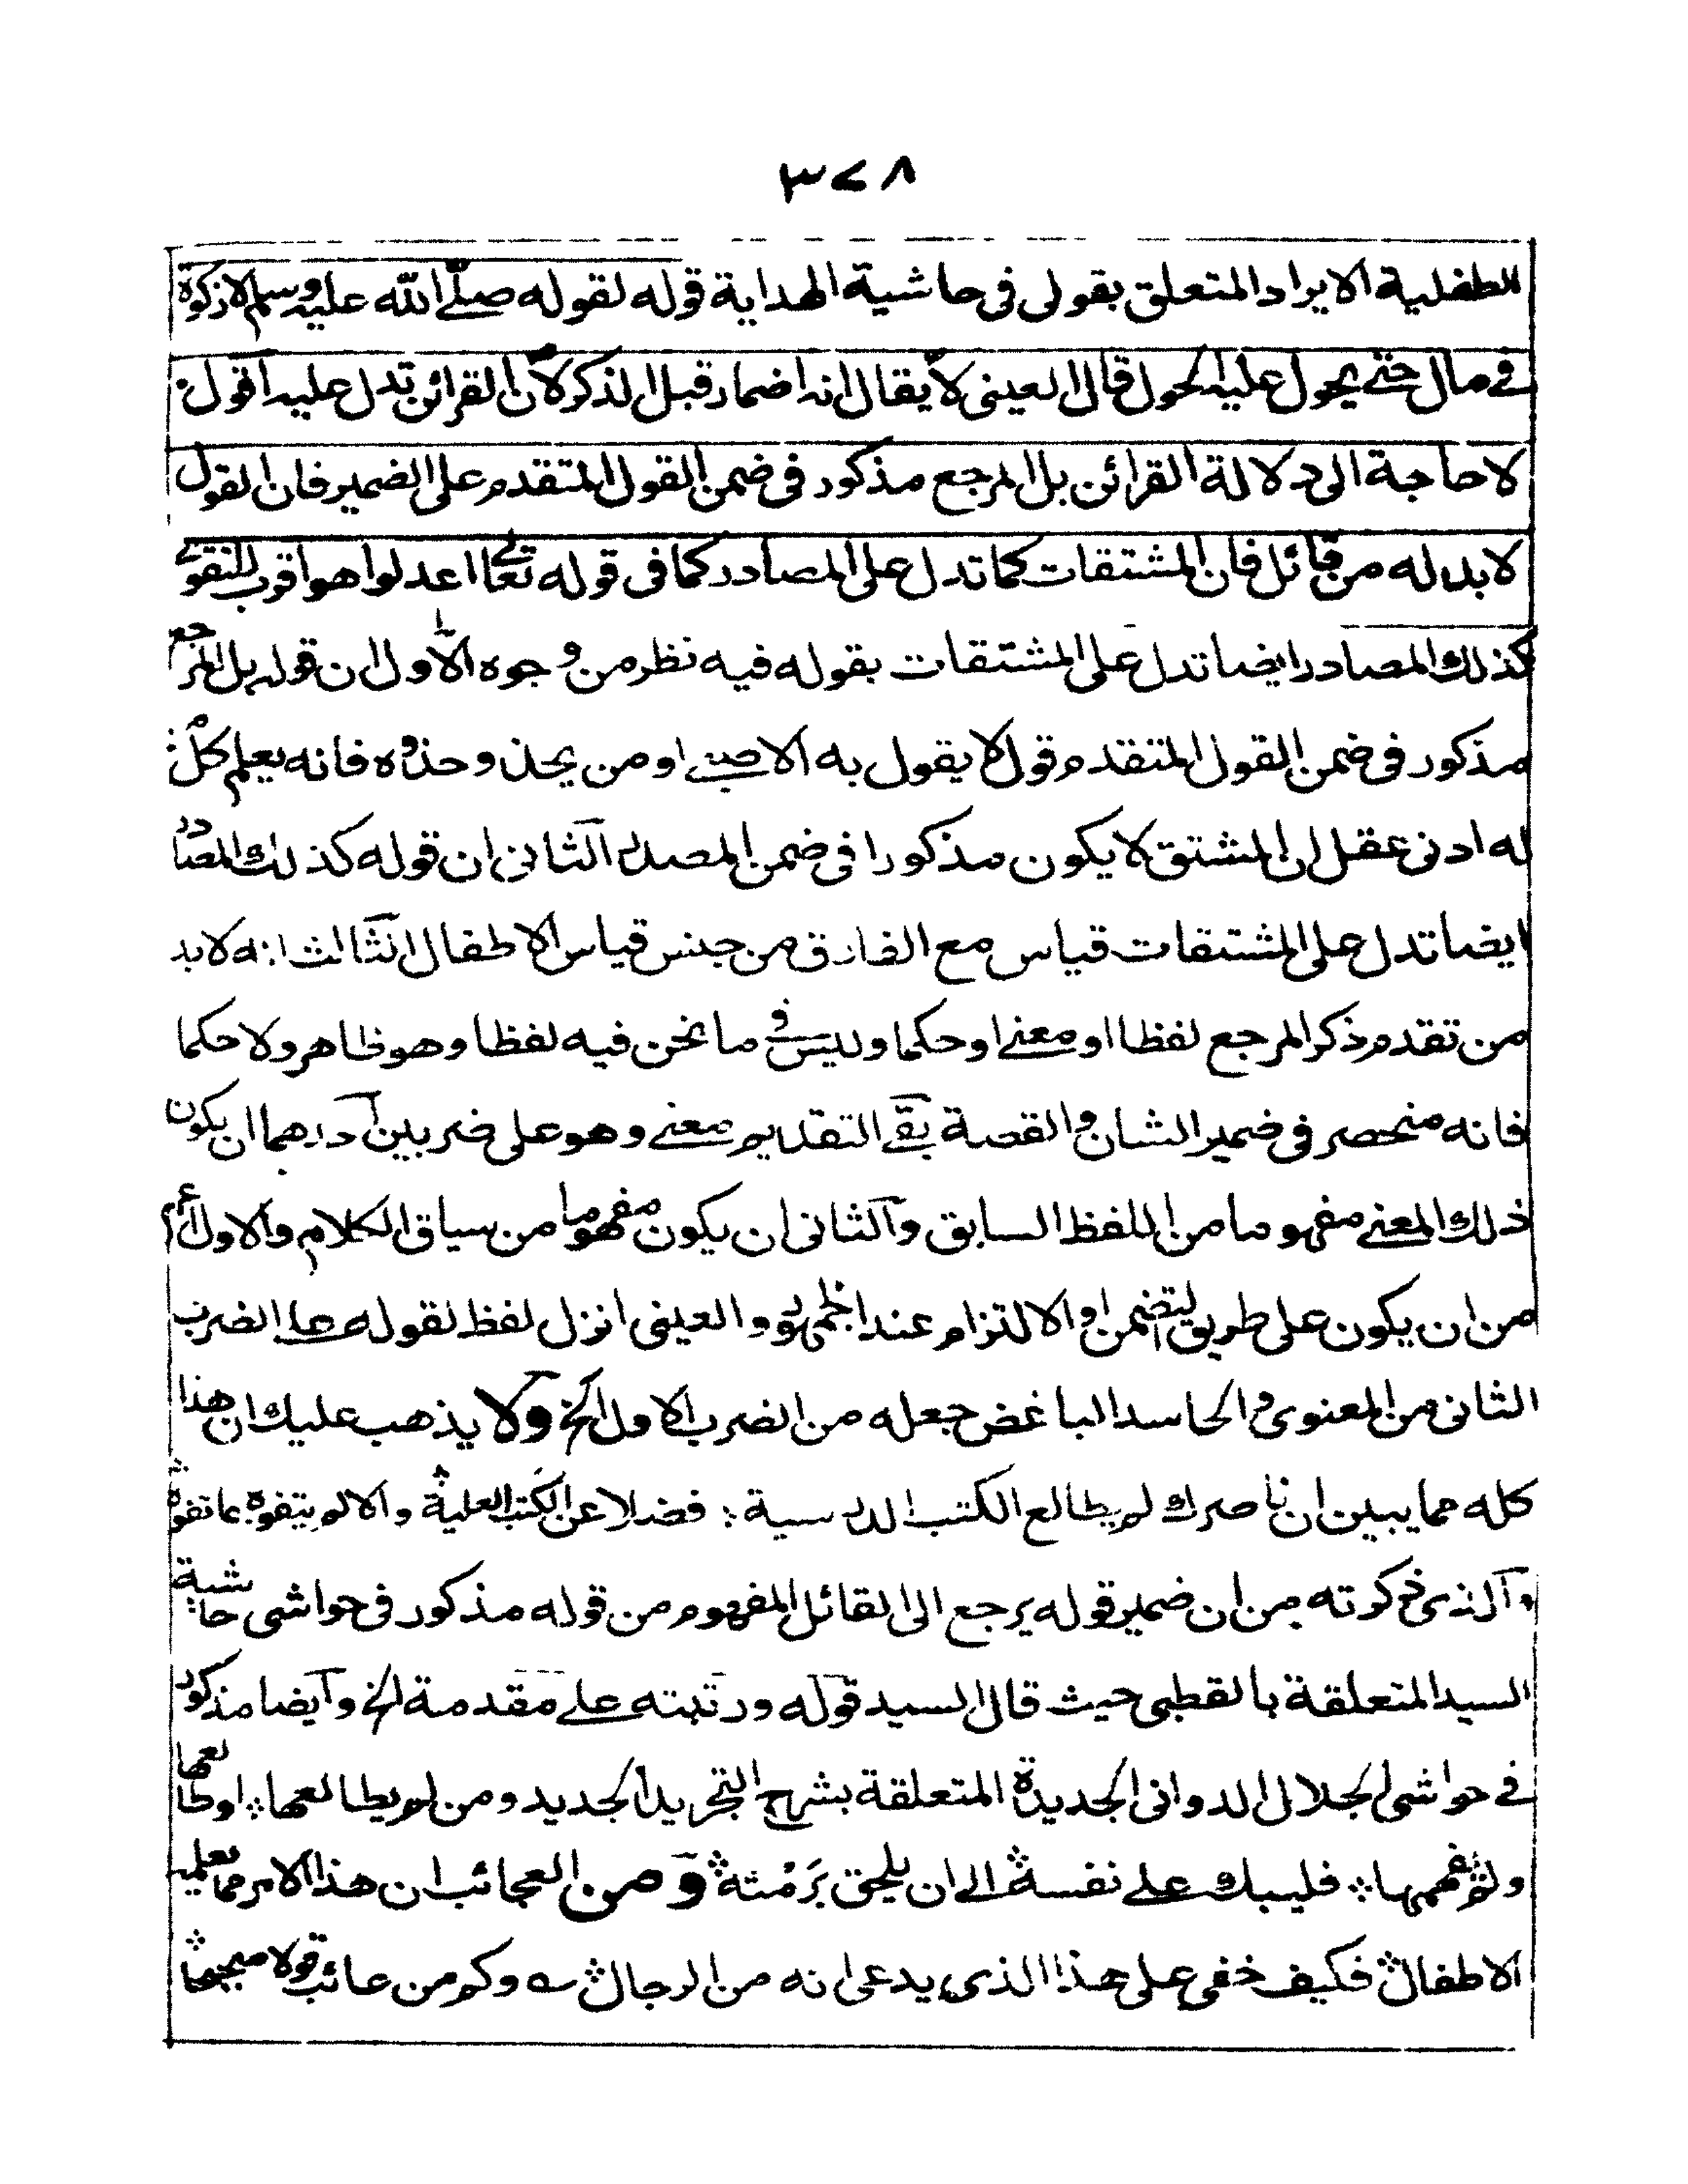 ٣٧٨
الطفلية الايراد المتعلق بقولى فى حاشية الهداية قوله لقوله صلى الله عليه وسلم لا زكوة
فى مال حتى يحول عليه الحول قال العينى لا يقال انه اضمار قبل الذكر لان القرائن تدل عليه اقول
لا حاجة الى دلالة القرائن بل المرجع مذكور فى ضمن القول المتقدم على الضمير فان القول
لا بد له من قائل فان المشتقات كما تدل على المصادر كما فى قوله تعالى اعدلوا هو اقرب للتقوى
كذلك المصادر ايضا تدل على المشتقات بقوله فيه نظر من وجوه الاول ان قوله بل المرجع
مذكور فى ضمن القول المتقدم قول لا يقول به الا صبى او من يحذو حذوه فانه يعلم كل من
له ادنى عقل ان المشتق لا يكون مذكورا فى ضمن المصدر الثانى ان قوله كذلك المصادر
ايضا تدل على المشتقات قياس مع الفارق من جنس قياس الاطفال الثالث انه لا بد
من تقدم ذكر المرجع لفظا او معنى او حكما وليس فى ما نحن فيه لفظا وهو ظاهر ولا حكما
فانه منحصر فى ضمير الشان والقصة بقى التقديم معنى وهو على ضربين احدهما ان يكون
ذلك المعنى مفهوما من اللفظ السابق والثانى ان يكون مفهوما من سياق الكلام والاول اعم
من ان يكون على طريق التضمن او الالتزام عند الجمهور والعينى انزل لفظ لقوله على الضرب
الثانى من المعنوى والحاسد الباغض جعله من الضرب الاول الخ ولا يذهب عليك ان هذا
كله مما يبين ان ناصرك لم يطالع الكتب الدرسية فضلا عن الكتب العلية والا لم يتفوه بما تفوه
والذى ذكرته من ان ضمير قوله يرجع الى القائل المفهوم من قوله مذكور فى حواشى حاشية
السيد المتعلقة بالقطبى حيث قال السيد قوله ورتبته على مقدمة الخ وايضا مذكور
فى حواشى الجلال الدوانى الجديدة المتعلقة بشرح التجريد الجديد ومن لم يطالعها او طالعها
ولم يفهمها فليبك على نفسه الى ان يلحق برمته ومن العجائب ان هذا الامر مما يعلمه
الاطفال فكيف خفى على هذا الذى يدعى انه من الرجال وكم من عائب قولا صحيحا